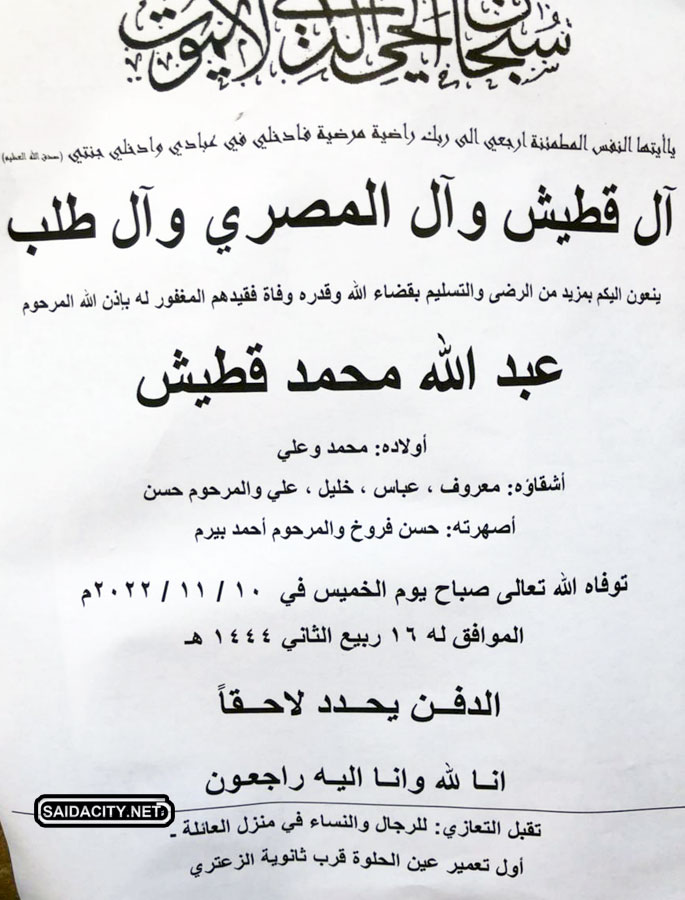 سبحان الحي الذي لا يموت
ياأيتها النفس المطمئنة ارجعي الى ربك راضية مرضية فادخلي في عبادي وادخلي جنتي (صدق الله العظيم)
آل قطيش وآل المصري وآل طلب
ينعون اليكم بمزيد من الرضى والتسليم بقضاء الله وقدره وفاة فقيدهم المغفور له بإذن الله المرحوم
عبد الله محمد قطيش
أولاده: محمد وعلي
أشقاؤه: معروف ، عباس ، خليل ، علي والمرحوم حسن
أصهرته: حسن فروخ والمرحوم أحمد بيرم
توفاه الله تعالى صباح يوم الخميس في ١٠ / ١١ / ٢٠٢٢م
الموافق له ١٦ ربيع الثاني ١٤٤٤ هـ
الدفـن يحـدد لاحـقـاً
انـا لله وانـا اليـه راجعـون
SAIDACITY.NET
تقبل التعازي: للرجال والنساء في منزل العائلة -
أول تعمير عين الحلوة قرب ثانوية الزعتري